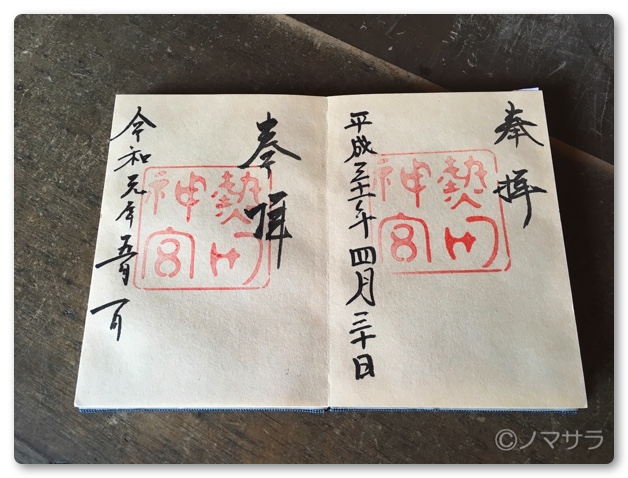 奉拝
熱田
神宮
平成三十一年四月三十日
奉拝
熱田
神宮
令和元年五月一日
©ノマサラ